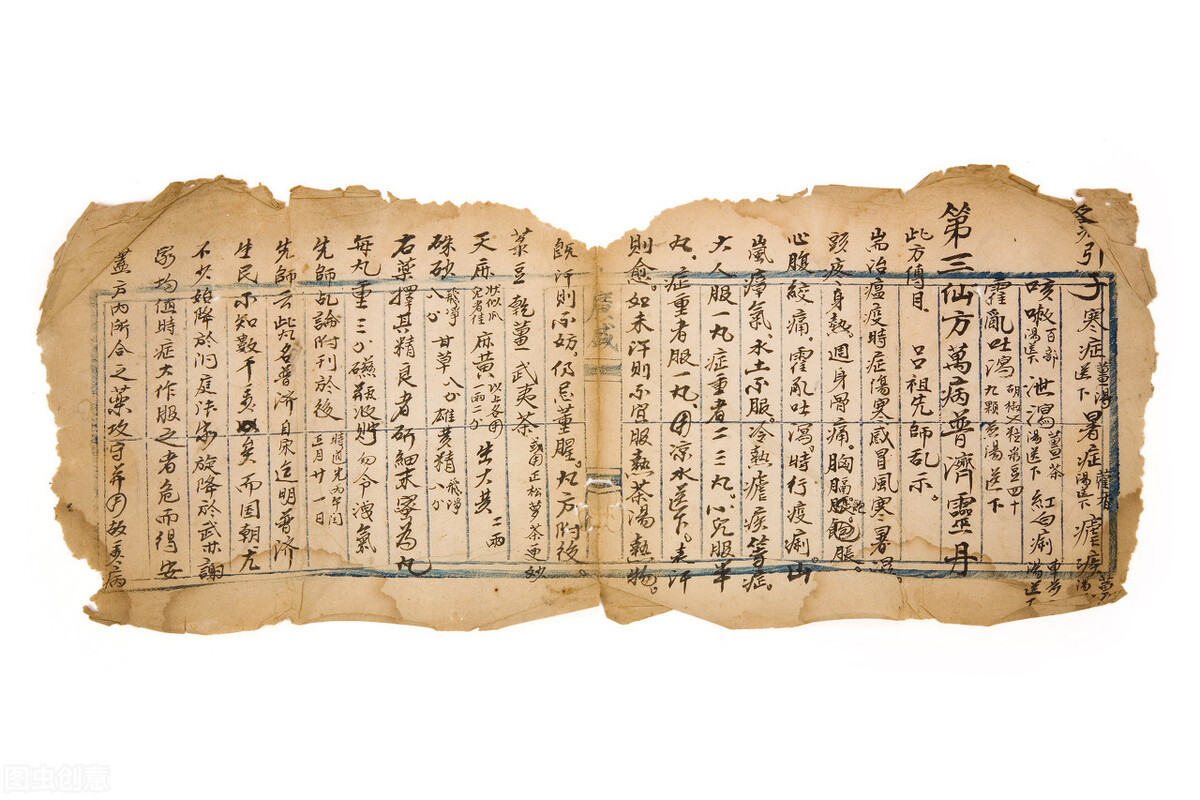 引子 寒症 薑湯送下 暑症 藿香湯送下 瘧疾
咳嗽 百部湯送下 泄瀉 薑茶湯送下 紅白痢 車前湯送下
霍亂吐瀉 胡椒九顆 菉豆四十粒 煎湯送下
第三仙方萬病普濟靈丹
此方傳自 呂祖先師乩示。
耑治瘟疫時症傷寒感冒風寒暑濕。
頭疼身熱。週身骨痛。胸膈飽脹。
心腹絞痛。霍亂吐瀉。時行疫痢。山
嵐瘴氣。水土不服。冷熱瘧疾等症。
大人服一丸。症重者二三丸。小兒服半
丸。症重者服一丸。用凉水送下。表汗
則愈。如未汗則不宜服熱茶湯熱物。
既汗則不妨。仍忌葷腥。丸方附後。
菉豆 乾薑 武夷茶 或用正松蘿茶更妙
天麻 狀似瓜完者佳 麻黃 以上各用一兩二分 生大黃 二兩
硃砂 飛淨八分 甘草 八分 雄黃精 飛淨八分
右藥擇其精良者研細末蜜為丸
每丸重三分磁瓶收貯勿令洩氣
先師乩論附刊於後 時道光丙午閏五月廿一日
先師云此丸名普濟自宋迄明普濟
生民不知數千萬矣而国朝尤
不少始降於洞庭法家旋降於武廿謝
家均值時症大作服之者危而得安
蓋方內所合之藥攻守并用故萬病